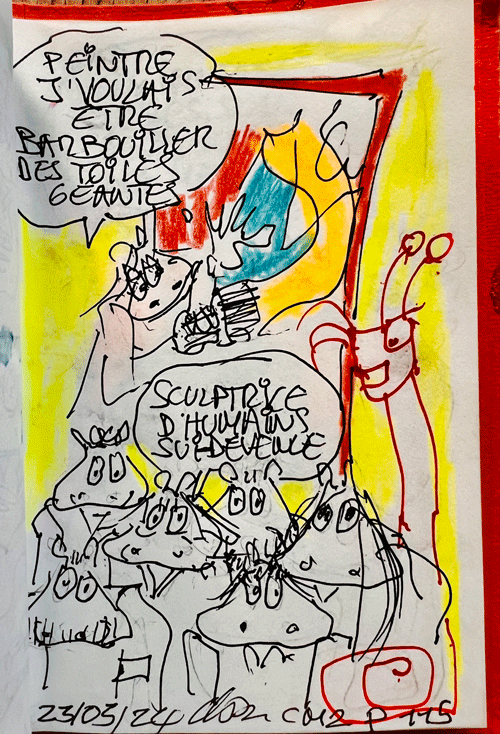 PEINTRE
J'VOULAIS
ETRE
BARBOUILLER
DES TOILES
GEANTES
SCULPTRICE
D'HUMAINS
SUIS DEVENUE
23/05/24 C012 P 115